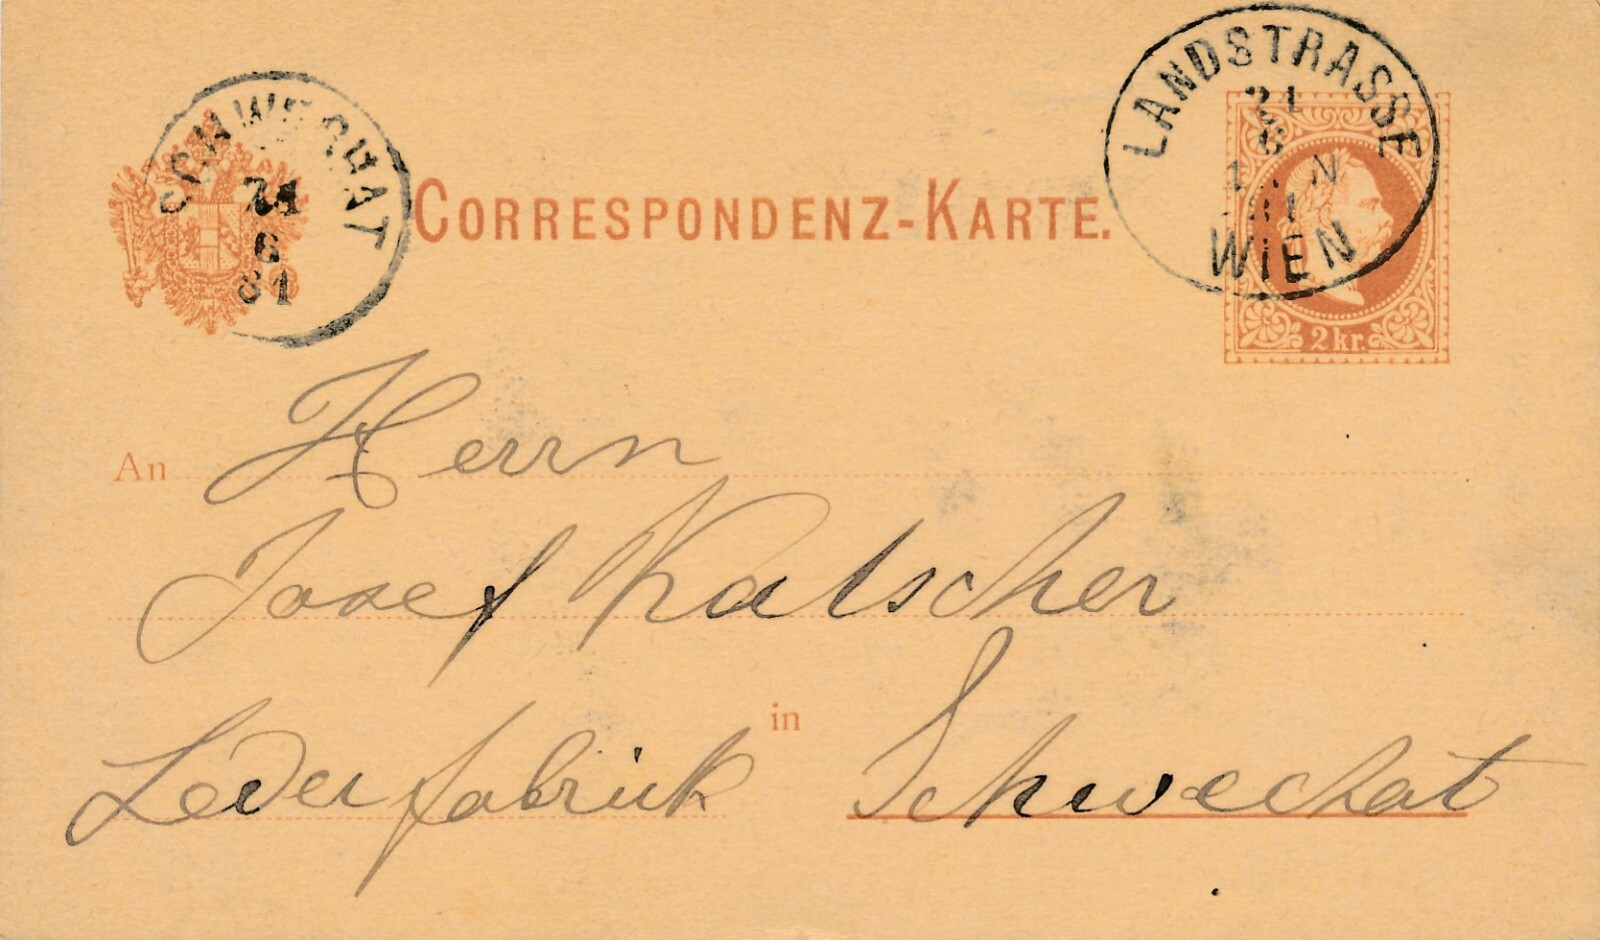 SCHWECHAT
21
6
81
CORRESPONDENZ-KARTE.
LANDSTRASSE
21
6
N
81
WIEN
2 kr.
An Herrn
Josef Katscher
Lederfabrik in Schwechat